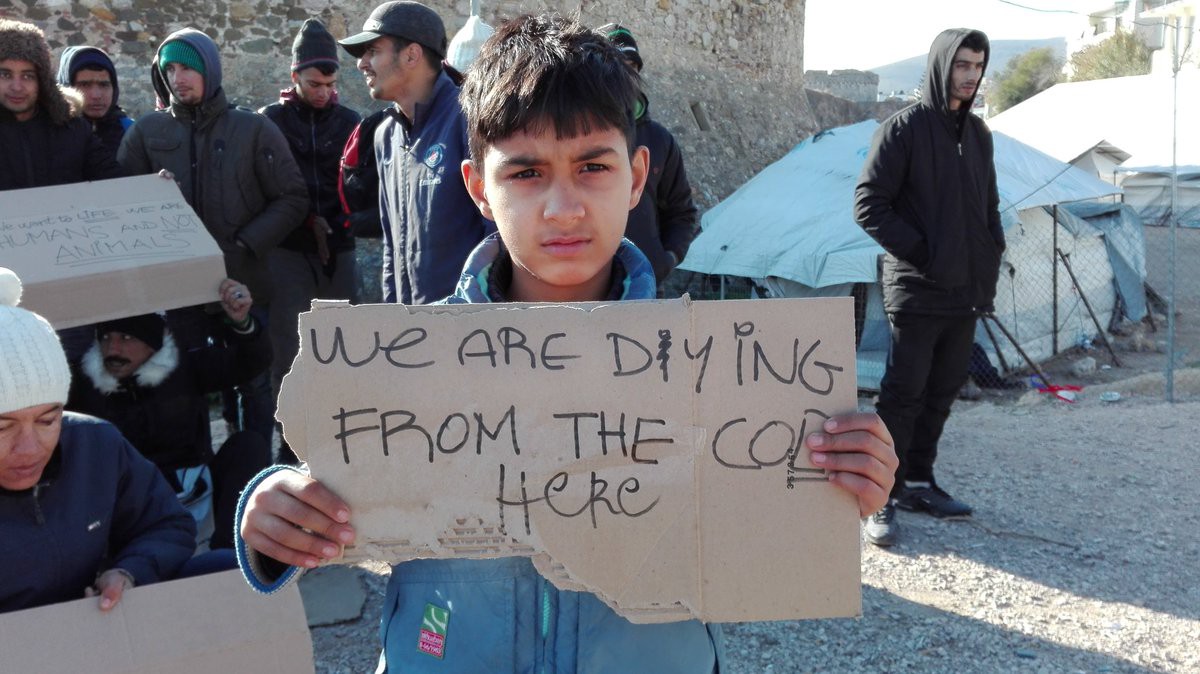 We want to LIFE WE ARE
HUMANS AND NOT
ANIMALS
WE ARE DIYING
FROM THE COLD
Here